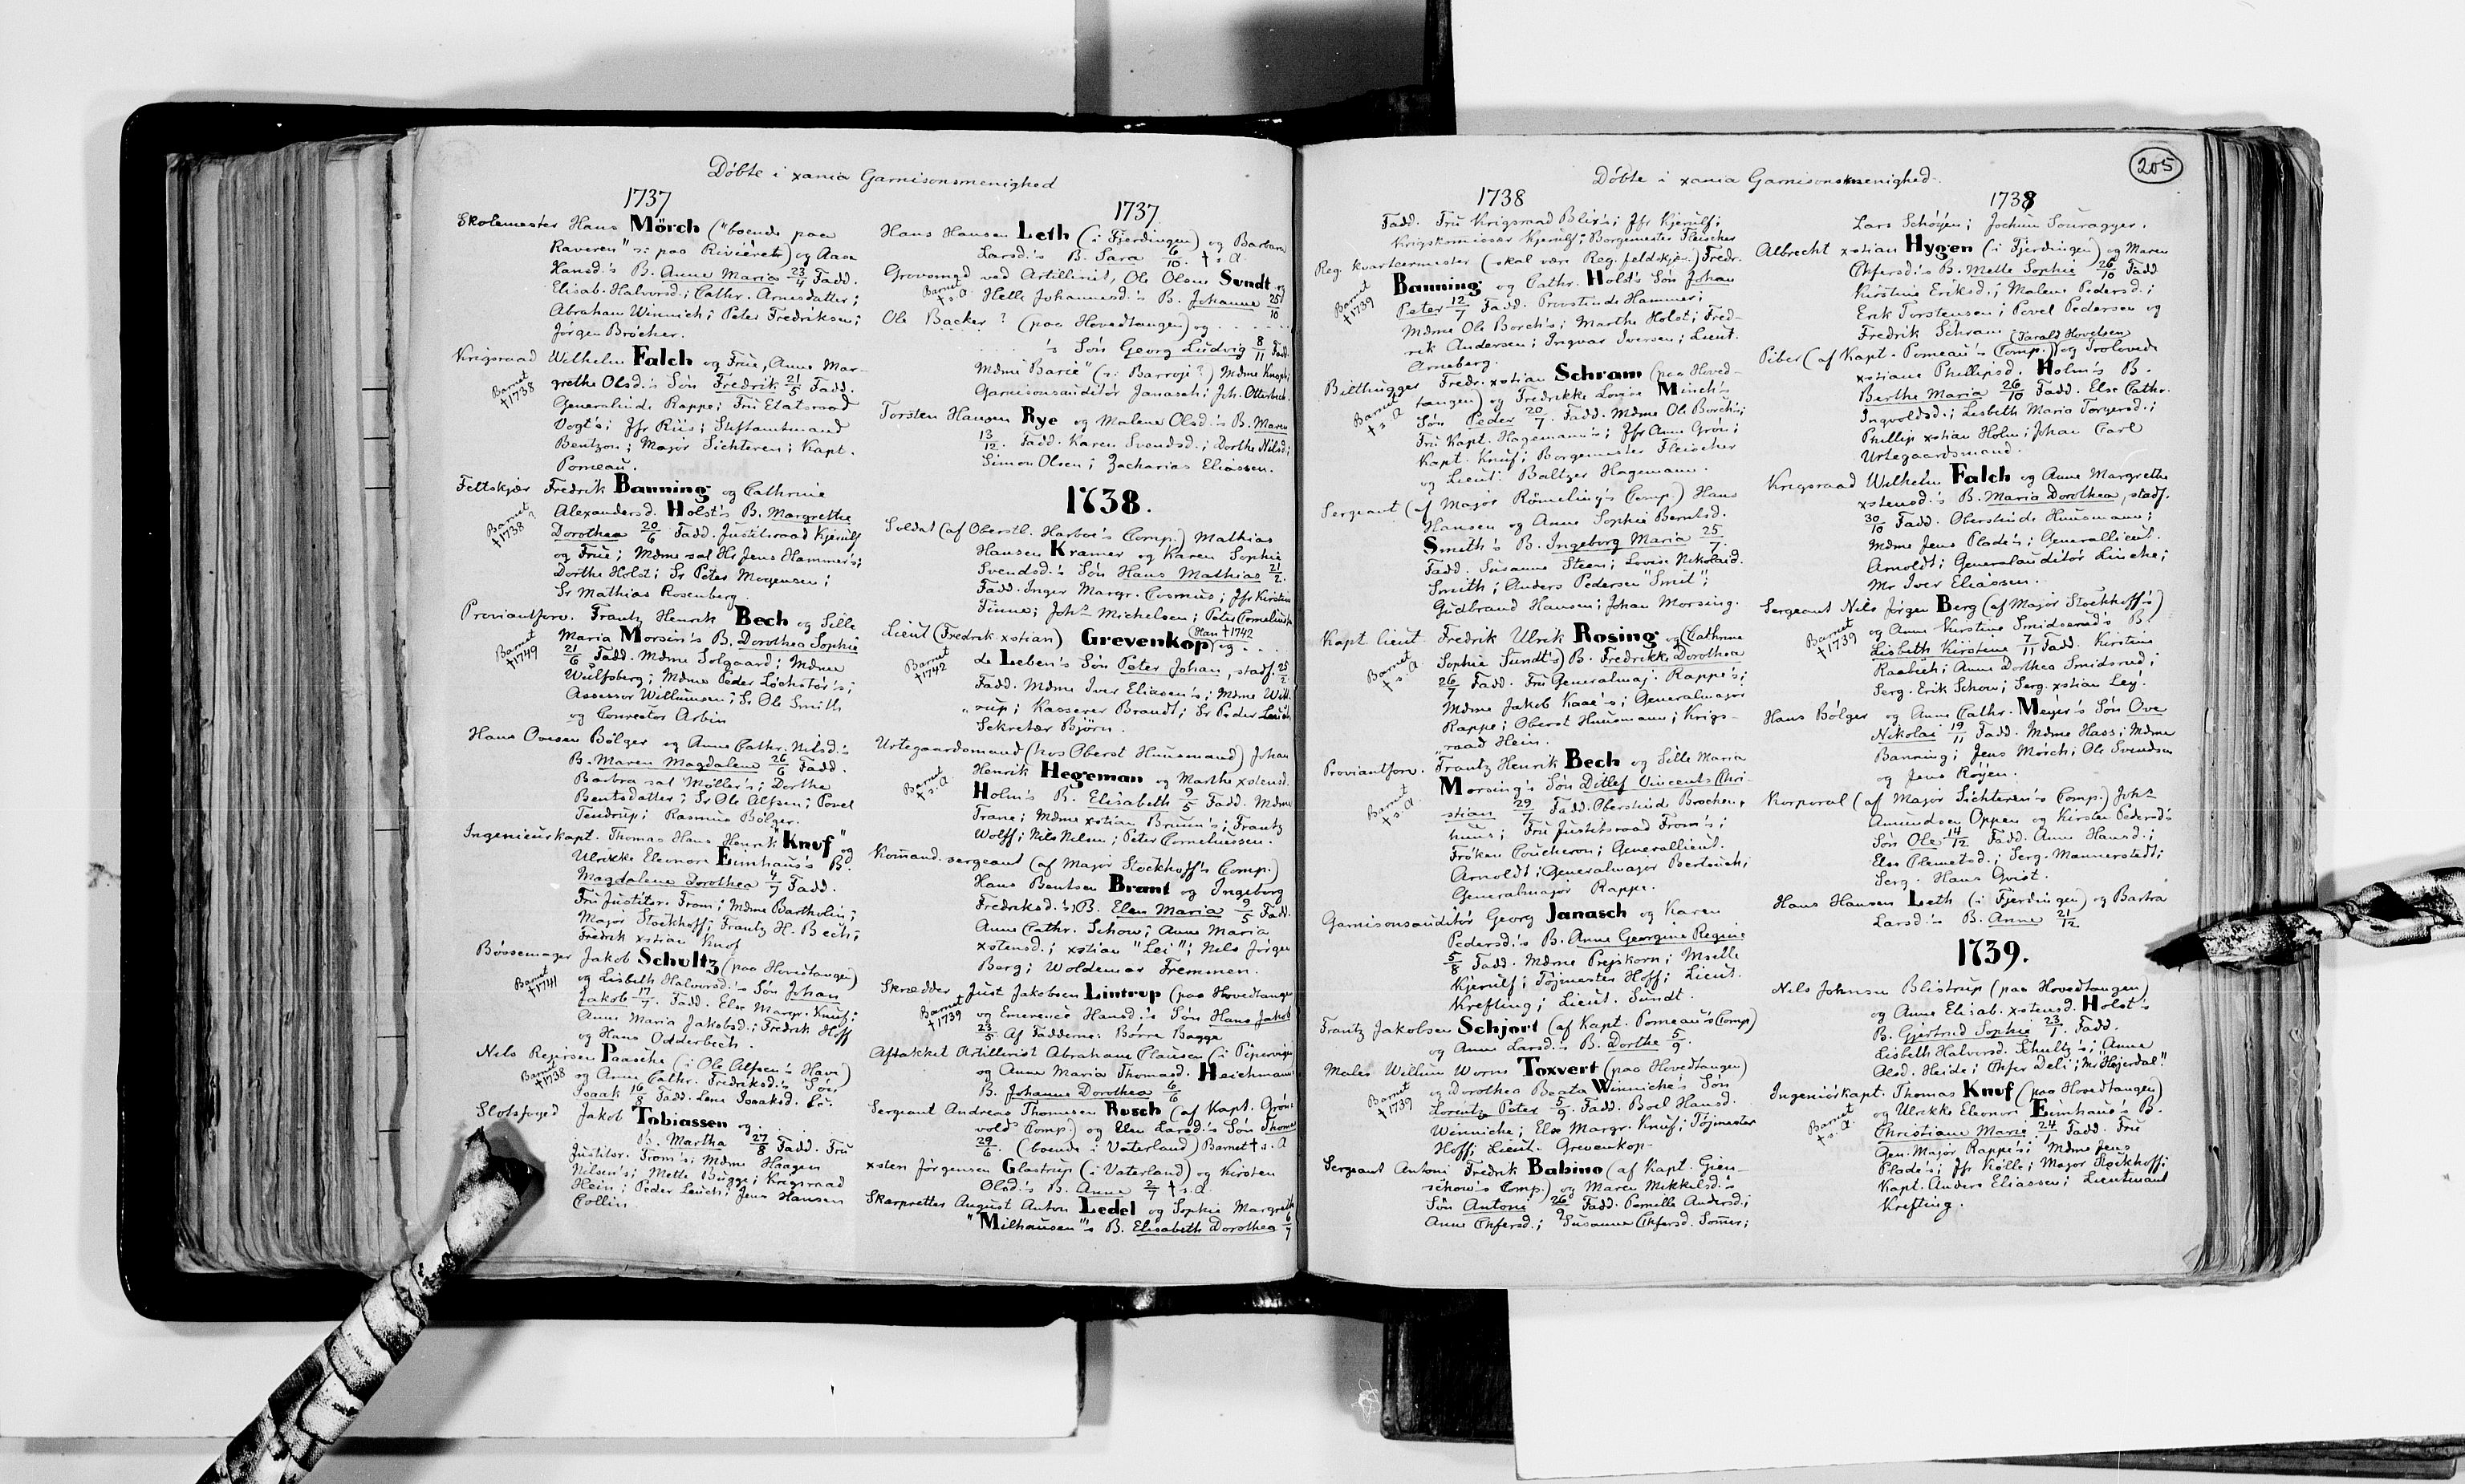 Döbte i xania Garnisonsmenighed
1737
Skolemester Hans Mörch ("boende paa
Raveren" ɔ: paa Rivieret) og Aase
Hansd.'s B. Anne Maria 23/4 Fadd.
Elisab. Halvorsd.; Cathr. Arnesdatter;
Abraham Winnich; Peter Fredriksen;
Jörgen Bröcher.
Krigsraad Wilhelm Falch og Frue, Anne Mar-
grethe Olsd.'s Sön Fredrik 21/5 Fadd.
Barnet †1738
Generalinde Rappe; Fru Etatsraad
Vogt's; Jfr Riis; Stiftamtmand
Bentzon; Major Sichteren; Kapt.
Pomeau.
Feltskjær Fredrik Banning og Cathrine
Alexandersd. Holst's B. Margrethe
Barnet †1738?
Dorothea 20/6 Fadd. Justitsraad Kjerulf
og Frue; Mdme sal Hr Jens Hammer's;
Dorthe Holst; Sr Peter Mogensen;
Sr Mathias Rosenberg.
Proviantforv. Frantz Henrik Bech og Sille
Maria Morsin's B. Dorothea Sophie
Barnet †1749
21/6 Fadd. Mdme Solgaard; Mdme
Wulfsberg; Mdme Peder Löchstör's;
Assessor Willumsen; Sr Ole Smith
og Conrector Arbin
Hans Ovesen Bölger og Anne Cathr. Nilsd.'s
B. Maren Magdalene 26/6 Fadd.
Barbra sal Möller's; Dorthe
Bentsdatter; Sr Ole Alfsen; Povel
Tendrup; Rasmus Bölger.
Ingenieurkapt. Thomas Hans Henrik "Knuf" og
Ulrikke Eleonore Eimhaus's B.
Magdalene Dorothea 4/7 Fadd.
Fru Justitsr. From; Mdme Bartholin;
Major Stockhoff; Frantz H. Bech;
Fredrik xstian Knof
Bössemager Jakob Schultz (paa Hovedtangen)
og Lisbeth Halvorsd.'s Sön Johan
Barnet †1741
Jakob 17/7. Fadd. Else Margr. Knuf;
Anne Maria Jakobsd.; Fredrik Hoff
og Hans Odderbech.
Nils Reiersen Paasche (i Ole Alfsen's Have)
og Anne Cathr. Fredriksd.'s Sön
Barnet †1738
Isaak 16/8 Fadd. Lene Isaaksd.
Slotsfoged Jakob Tobiassen og . . . . .
B. Martha 27/8 Fadd. Fru
Justitsr. From's; Mdme Haagen
Nilsen's; Mette Bugge; Krigsraad
Hein; Peder Leuch; Jens Hansen
Collin
1737.
Hans Hansen Leth (i Fjerdingen) og Barbara
Larsd.'s B. Sara 6/10. † s. A.
Grovsmed ved Artilleriet, Ole Olsen Sundt og
Barnet † s.A.
Helle Johannesd.'s B. Johanne 25/10
Ole Backer? (paa Hovedtangen) og . . . . .
. . . . . 's Sön Georg Ludvig 8/11 Fadd.
Mdme "Barie" (ɔ: Barroje?) Mdme
Garnisonsauditör Janasch; Joh. Otterbech.
Torsten Hansen Rye og Malene Olsd.'s B. Maren
13/12. Fadd. Karen Svendsd.; Dorthe Nilsd;
Simon Olsen; Zacharias Eliassen.
1738.
Soldat (af Oberstl. Harboe's Comp.) Mathias
Hansen Kramer og Karen Sophie
Svendsd.'s Sön Hans Mathias 21/2.
Fadd. Inger Margr. Cosmus; Jfr Kirstine
Finne; Johs Michelsen; Peter Cornelius
Lieut (Fredrik xstian) Grevenkop (Han †1742) og . . .
de Leben's Sön Peter Johan, stadf. 25/2.
Barnet †1742
Fadd. Mdme Iver Eliasen's; Mdme Will-
rup; Kasserer Brandt; Sr Peder Leuch
Sekretær Björn.
Urtegaardsmand (hos Oberst Huusmand) Johan
Henrik Hegeman og Marthe xstensd.
Barnet † s. A.
Holm's B. Elisabeth 9/5 Fadd. Mdme
Trane; Mdme xstian Bruun's; Frantz
Wolff; Nils Nilsen; Peter Corneliussen.
Komand. sergeant (af Major Stockhoff's Comp.)
Hans Bentsen Brant og Ingeborg
Fredriksd.'s B. Elen Maria 9/5 Fadd.
Anne Cathr. Schow; Anne Maria
xstensd.; xstian "Lei"; Nils Jörgen
Berg; Woldemar Fremmen.
Skrædder Just Jakobsen Lintrup (paa Hovedtangen
Barnet †1739
og Emerence Hansd.'s Sön Hans Jakob
23/5. Af Fadderne: Börre Bagge
Aftakket Artillerist Abraham Clausen (i Pipervigen
og Anne Maria Thomasd. Heichmann
B. Johanne Dorothea 6/6
Sergeant Andreas Thomesen Rusch (af Kapt. Grön-
vold's Comp.) og Elen Larsd.'s Sön Thomas
29/6. (boende i Vaterland) Barnet † s. A
xsten Jörgensen Glastrup (i Vaterland) og Kirsten
Olsd.'s B. Anne 2/7 † s.A.
Skarpretter August Anton Ledel og Sophie Margrethe
"Milhausen"'s B. Elisabeth Dorothea 6/7
205
Döbte i xania Garnisonsmenighed.
1738
Fadd. Fru Krigsraad Blix's; Jfr Kjerulf;
Krigskomissær Kjerulf; Borgemester Fleischer
Reg. kvartermester (skal være Reg. feldskjær.) Fredr.
Banning og Cathr. Holst's Sön Johan
Barnet †1739
Peter 12/7 Fadd. Provstinde Hammer;
Mdme Ole Borch's; Marthe Holst; Fred-
rik Andersen; Ingvar Iversen; Lieut.
Arneberg.
Bilthugger Fredr. xstian Schram (paa Hoved-
tangen) og Fredrikke Lovise Minch's
Barnet † s. A
Sön Peder 20/7. Fadd. Mdme Ole Borch's;
Fru Kapt. Hagemann's; Jfr Anne Grön;
Kapt. Knuf; Borgemester Fleischer
og Lieut. Baltzer Hagemann.
Sergeant (af Major Römeling's Comp) Hans
Hansen og Anne Sophie Berntsd.
Smith's B. Ingeborg Maria 25/7.
Fadd. Susanne Steen; Lovise Nikolaid.
Smith; Anders Pedersen "Smit";
Gudbrand Hansen; Johan Morsing.
Kapt. lieut. Fredrik Ulrik Rosing og (Cathrine
Sophie Sundt's) B. Fredrikke Dorothea
Barnet † s. A
26/7 Fadd. Fru Generalmaj. Rappe's;
Mdme Jakob Kaae's; Generalmajor
Rappe; Oberst Huusmann; Krigs-
raad Hein.
Proviantforv. Frantz Henrik Bech og Sille Maria
Morsing's Sön Ditlef Vincents Chri-
Barnet † s. A.
stian 29/7 Fadd. Oberstinde Brochen-
huus; Fru Justitsraad From's;
Fröken Coucheron; Generallieut.
Arnoldt; Generalmajor Bertouch;
Generalmajor Rappe.
Garnisonsauditör Georg Janasch og Karen
Pedersd.'s B. Anne Georgine Regine
5/8 Fadd. Mdme Prejskorn; Mselle
Kjerulf; Töjmester Hoff; Lieut.
Krefting; Lieut. Sundt.
Frantz Jakobsen Schjort (af Kapt. Pomeau's Comp)
og Anne Larsd.'s B. Dorthe 5/9.
Maler Willum Worns Toxvert (paa Hovedtangen)
og Dorothea Beata Winniche's Sön
Barnet †1739
Lorentz Peter 5/9. Fadd. Boel Hansd.
Winniche; Else Margr. Knuf; Töjmester
Hoff; Lieut. Grevenkop.
Sergeant Antoni Fredrik Babino (af Kapt. Gien-
schow's Comp.) og Maren Mikkelsd.'s
Sön Antoni 26/9 Fadd. Pernille Andersd.;
Anne Chfersd.; Susanne Chfersd. Somer;
1738
Lars Schöyen; Jochum Souragger.
Albrecht xstian Hygen (i Fjerdingen) og Maren
Chfersd.'s B. Mette Sophie 26/10 Fadd
Kirstine Eriksd.; Malene Pedersd.;
Erik Torstensen; Povel Pedersen og
Fredrik Schram
Piber (af Kapt. Pomeau's Comp.) (Tarald Hovelsen) og Trolovede
xstiane Phillipsd. Holm's B.
Berthe Maria 26/10 Fadd. Else Cathr.
Ingvoldsd.; Lisbeth Maria Torgersd.;
Phillip xstian Holm; Johan Carl
Urtegaardsmand.
Krigsraad Wilhelm Falch og Anne Margrethe
xstensd.'s B. Maria Dorothea, stadf.
30/10 Fadd. Oberstinde Huusmann;
Mdme Jens Plade's; Generallieut.
Arnoldt; Generalauditör Lincke;
Mr Iver Eliassen.
Sergeant Nils Jörgen Berg (af Major Stockhoff's)
og Anne Kirstine Smidserud's B.
Barnet †1739
Lisbeth Kirstine 7/11 Fadd. Kirstine
Raabich; Anne Dorthea Smidsrud;
Serg. Erik Schow; Serg. xstian Ley.
Hans Bölger og Anne Cathr. Meyer's Sön Ove
Nikolai 19/11 Fadd. Mdme Hass; Mdme
Banning; Jens Mörch; Ole Svendsen
og Jens Röyen.
Korporal (af Major Sichteren's Comp.) Johs
Amundsen Oppen og Kirsten Pedersd's
Sön Ole 14/12 Fadd. Anne Hansd.;
Else Clemetsd.; Serg. Mannerstedt;
Serg. Hans Qvist.
Hans Hansen Leth (i Fjerdingen) og Barbra
Larsd.'s B. Anne 21/12
1739.
Nils Johnsen Blistrup (paa Hovedtangen)
og Anne Elisab. xstensd. Holst's
B. Gjertrud Sophie 23/1. Fadd.
Lisbeth Halvorsd. Schultz's; Anne
Olsd. Heide; Chfer Deli; Mr "Höjerdal".
Ingeniörkapt. Thomas Knuf (paa Hovedtangen)
og Ulrikke Eleonore Eimhaus's B.
Barnet † s. A.
Christiane Marie 24/1 Fadd. Fru
Gen. Major Rappe's; Mdme Jens
Plade's; Jfr Kölle; Major Stockhoff;
Kapt. Anders Eliassen; Lieutnant
Krefting.